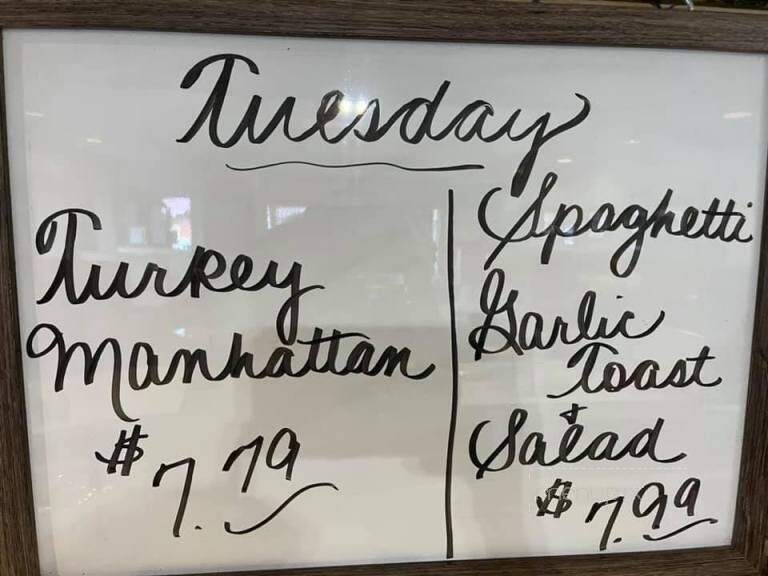 Tuesday
Turkey
Manhattan
$7.79
Spaghetti
Garlic
Toast
&
Salad
$7.99